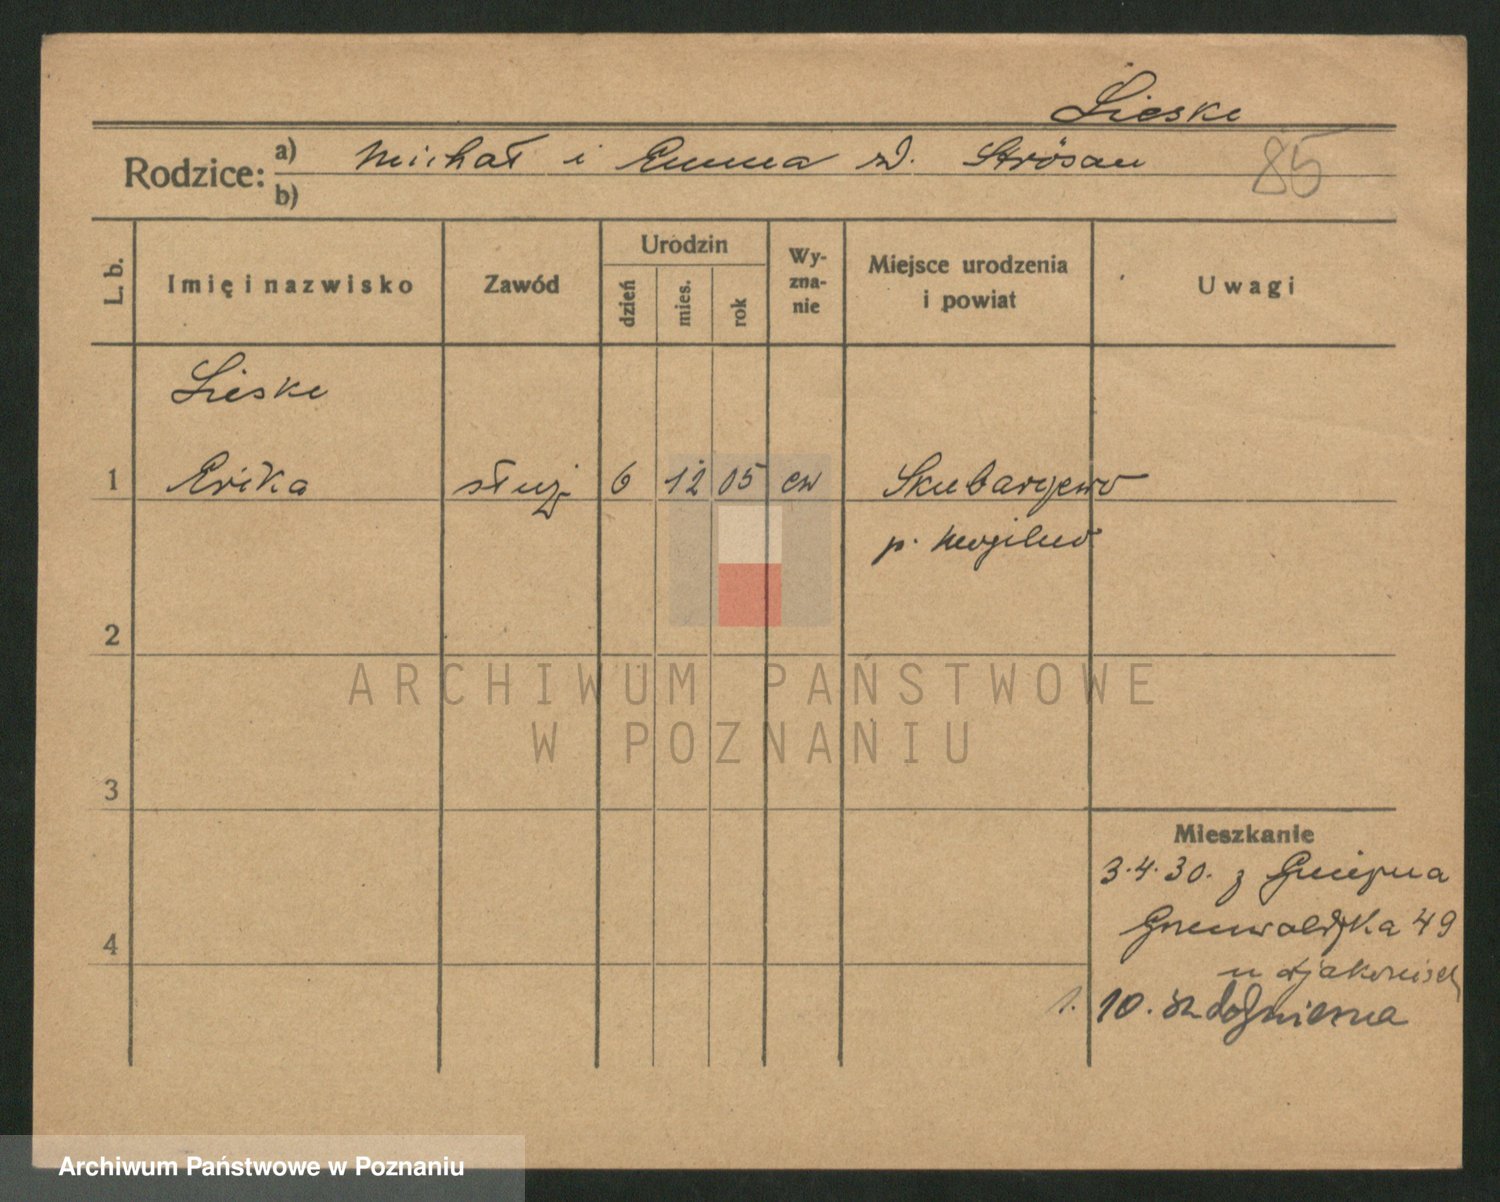 Lieske
Rodzice: a) Michał i Emma zd. Strösau
b)
85
L. b.
Imię i nazwisko
Zawód
Urodzin
dzień
mies.
rok
Wy-
zna-
nie
Miejsce urodzenia
i powiat
Uwagi
Lieske
1 Erika służ 6 12 05 ew Skubarczewo
p. Mogilno
2
3
4
Mieszkanie
3.4.30. z Gniezna
Grunwaldzka 49
u djakonisek
1. 10. do Gniezna
ARCHIWUM PAŃSTWOWE
W POZNANIU
Archiwum Państwowe w Poznaniu